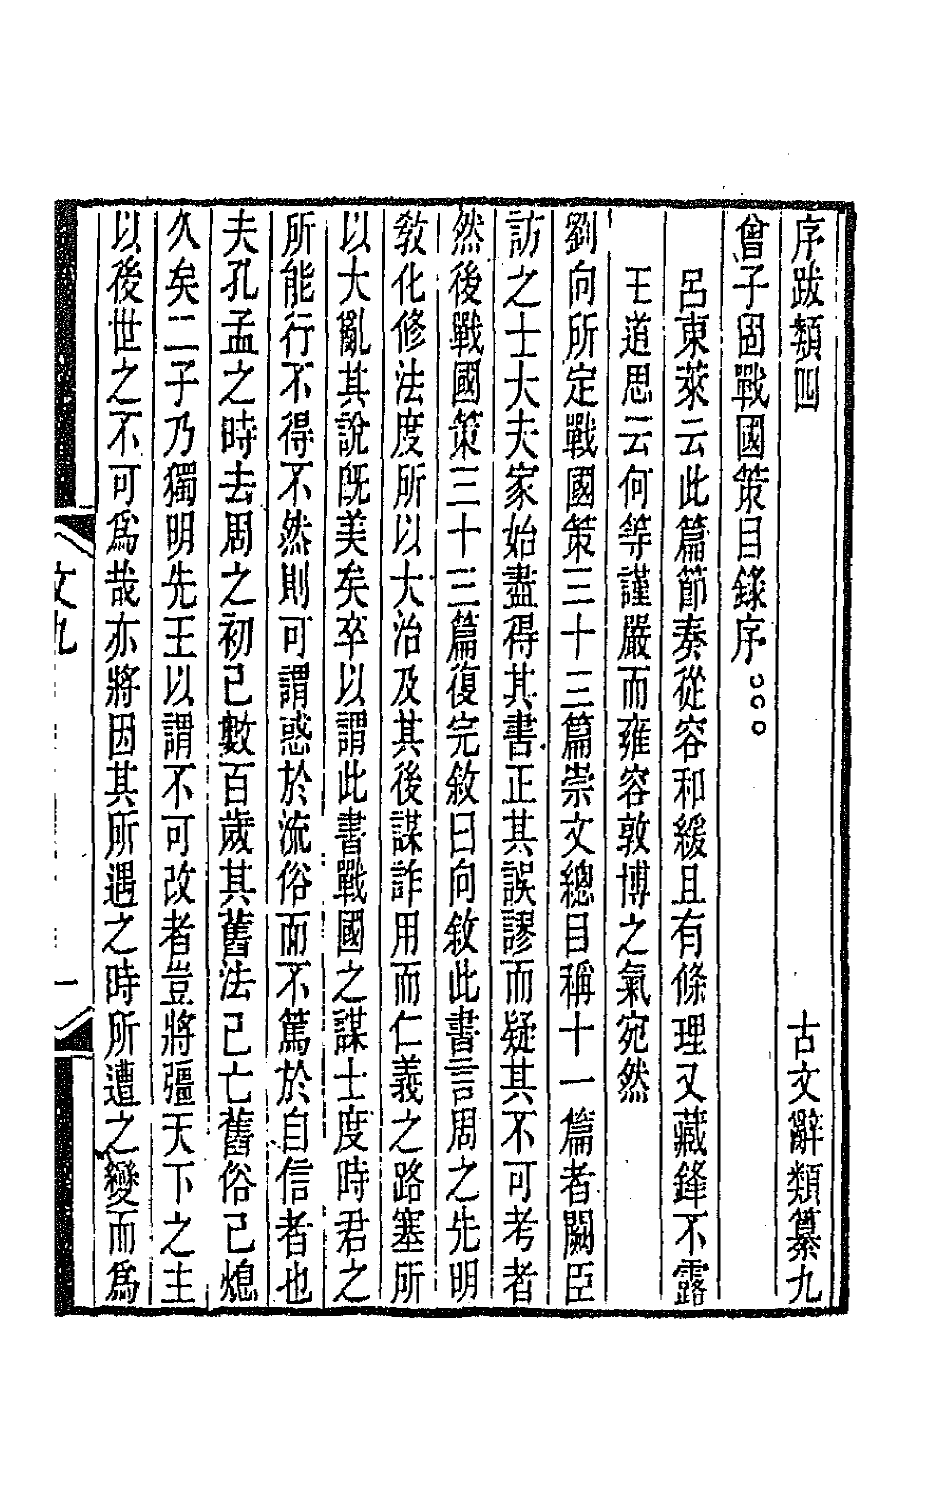 序跋類四　　　　　　　　　　　　古文辭類纂九
曾子固戰國策目錄序○○○
呂東萊云此篇節奏從容和緩且有條理又藏鋒不露
王道思云何等謹嚴而雍容敦博之氣宛然
劉向所定戰國策三十三篇崇文總目稱十一篇者闕臣
訪之士大夫家始盡得其書正其誤謬而疑其不可考者
然後戰國策三十三篇復完敘曰向敘此書言周之先明
敎化修法度所以大治及其後謀詐用而仁義之路塞所
以大亂其說旣美矣卒以謂此書戰國之謀士度時君之
所能行不得不然則可謂惑於流俗而不篤於自信者也
夫孔孟之時去周之初已數百歲其舊法已亡舊俗已熄
久矣二子乃獨明先王以謂不可改者豈將彊天下之主
以後世之不可爲哉亦將因其所遇之時所遭之變而爲
文九
一